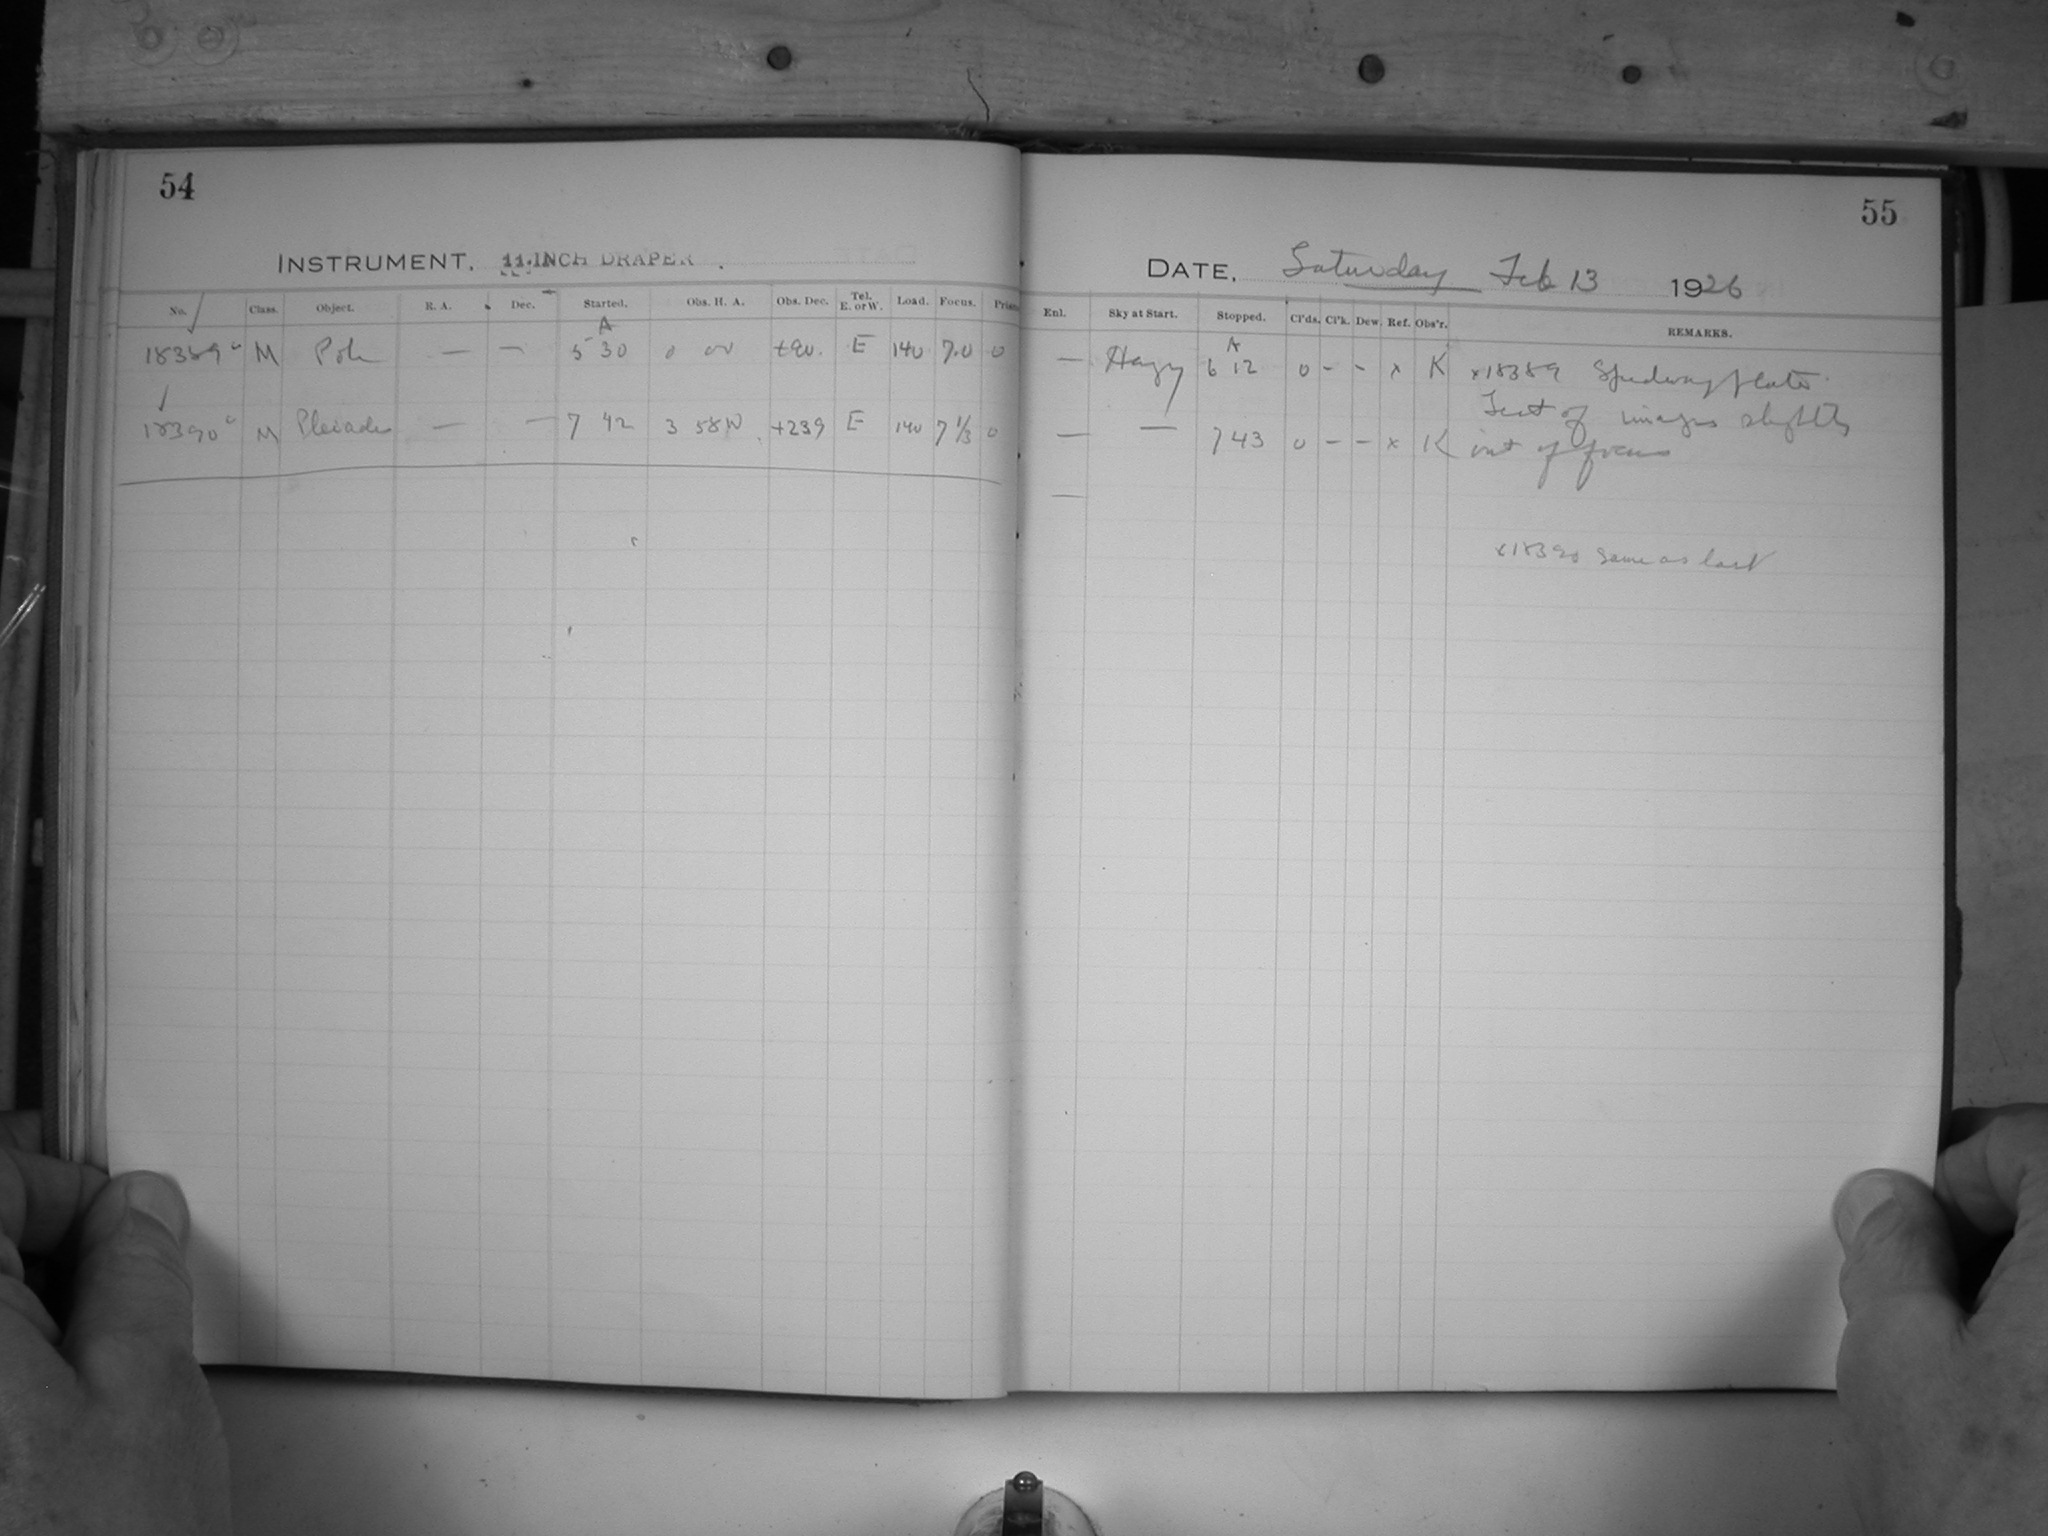 54
INSTRUMENT. 11-INCH DRAPER.
No. Class. Object. R. A. Dec. Started. Obs. H. A. Obs. Dec. Tel. E. or W. Load. Focus.
A
18389 M Pole — — 5 30 0 00 +90. E 140 7.0 0
18390 M Pleiades — — 7 42 3 58W +239 E 140 7 1/3 0
55
DATE. Saturday Feb 13 1926
Enl. Sky at Start. Stopped. Cl'ds. Cl'k. Dew. Ref. Obs'r. REMARKS.
A
— Hazy 6 12 0 - - x K x18389
Test of images slightly
— — 7 43 0 - - x K out of focus
—
x18390 same as last